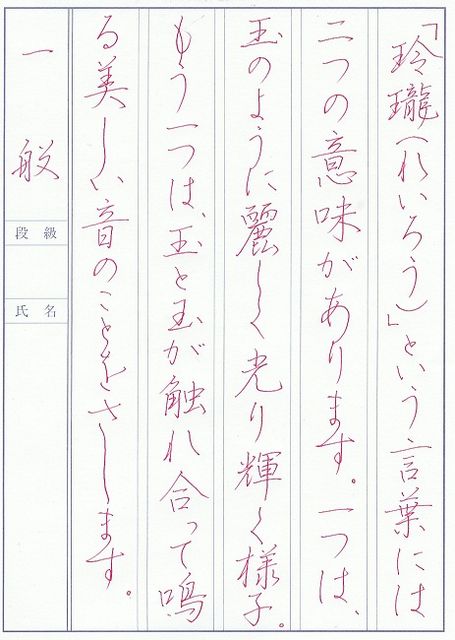 「玲瓏(れいろう)」という言葉には
二つの意味があります。一つは、
玉のように麗しく光り輝く様子。
もう一つは、玉と玉が触れ合って鳴
る美しい音のことをさします。
一般
段級
氏名